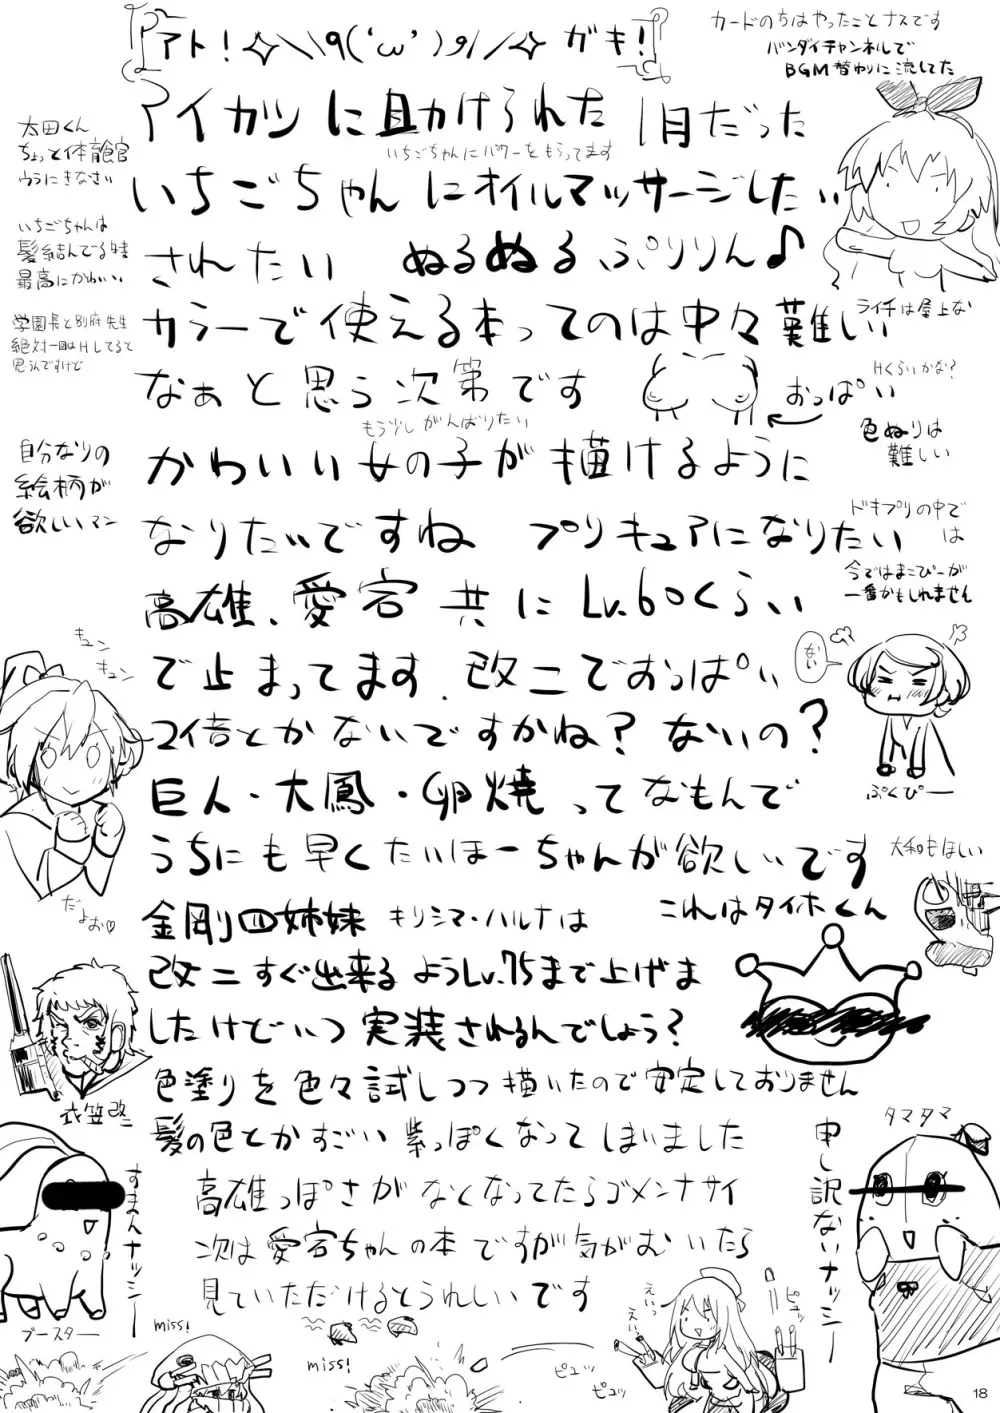 アト！✧＼\٩(‘ω’)و//✧ガキ！
カードのちはやったことナスです
バンダイチャンネルで
BGM替わりに流してた
アイカツに助けられた1月だった
いちごちゃんにパワーをもらってます
太田くん
ちょっと体育館
ウラにきなさい
いちごちゃんにオイルマッサージしたい
いちごちゃんは
髪結んでる時
最高にかわいい
されたい ぬるぬるぷりりん♪
学園長と別府先生
絶対一回はHしてると
思うんですけど
カラーで使える本ってのは中々難しい
ライチは屋上な
なぁと思う次第です
おっぱい
Hくらいかな?
もう少しがんばりたい
色ぬりは
難しい
自分なりの
絵柄が
欲しいマン
かわいい女の子が描けるように
なりたいですね プリキュアになりたい
ドキプリの中で
は
今ではまこぴーが
一番かもしれません
高雄、愛宕共にLv.60くらい
で止まってます.改二でおっぱい
キュン
キュン
ない
2倍とかないですかね?ないの?
ぷくぴー
巨人・大鳳・卵焼ってなもんで
うちにも早くたいほーちゃんが欲しいです
大和もほしい
だよぉ♡
金剛四姉妹 キリシマ・ハルナは
これはタイホくん
改二すぐ出来るようLv.75まで上げま
したけどいつ実装されるんでしょう?
衣笠改二
色塗りを色々試しつつ描いたので安定しておりません
髪の色とかすごい紫っぽくなってしまいました
タマタマ
申し訳ないナッシー
すまんナッシー
ブースター
高雄っぽさがなくなってたらゴメンナサイ
次は愛宕ちゃんの本ですが気がむいたら
見ていただけるとうれしいです
えいっ
えいっ
ピュッ
miss!
miss!
ピュッ
ピュッ
18